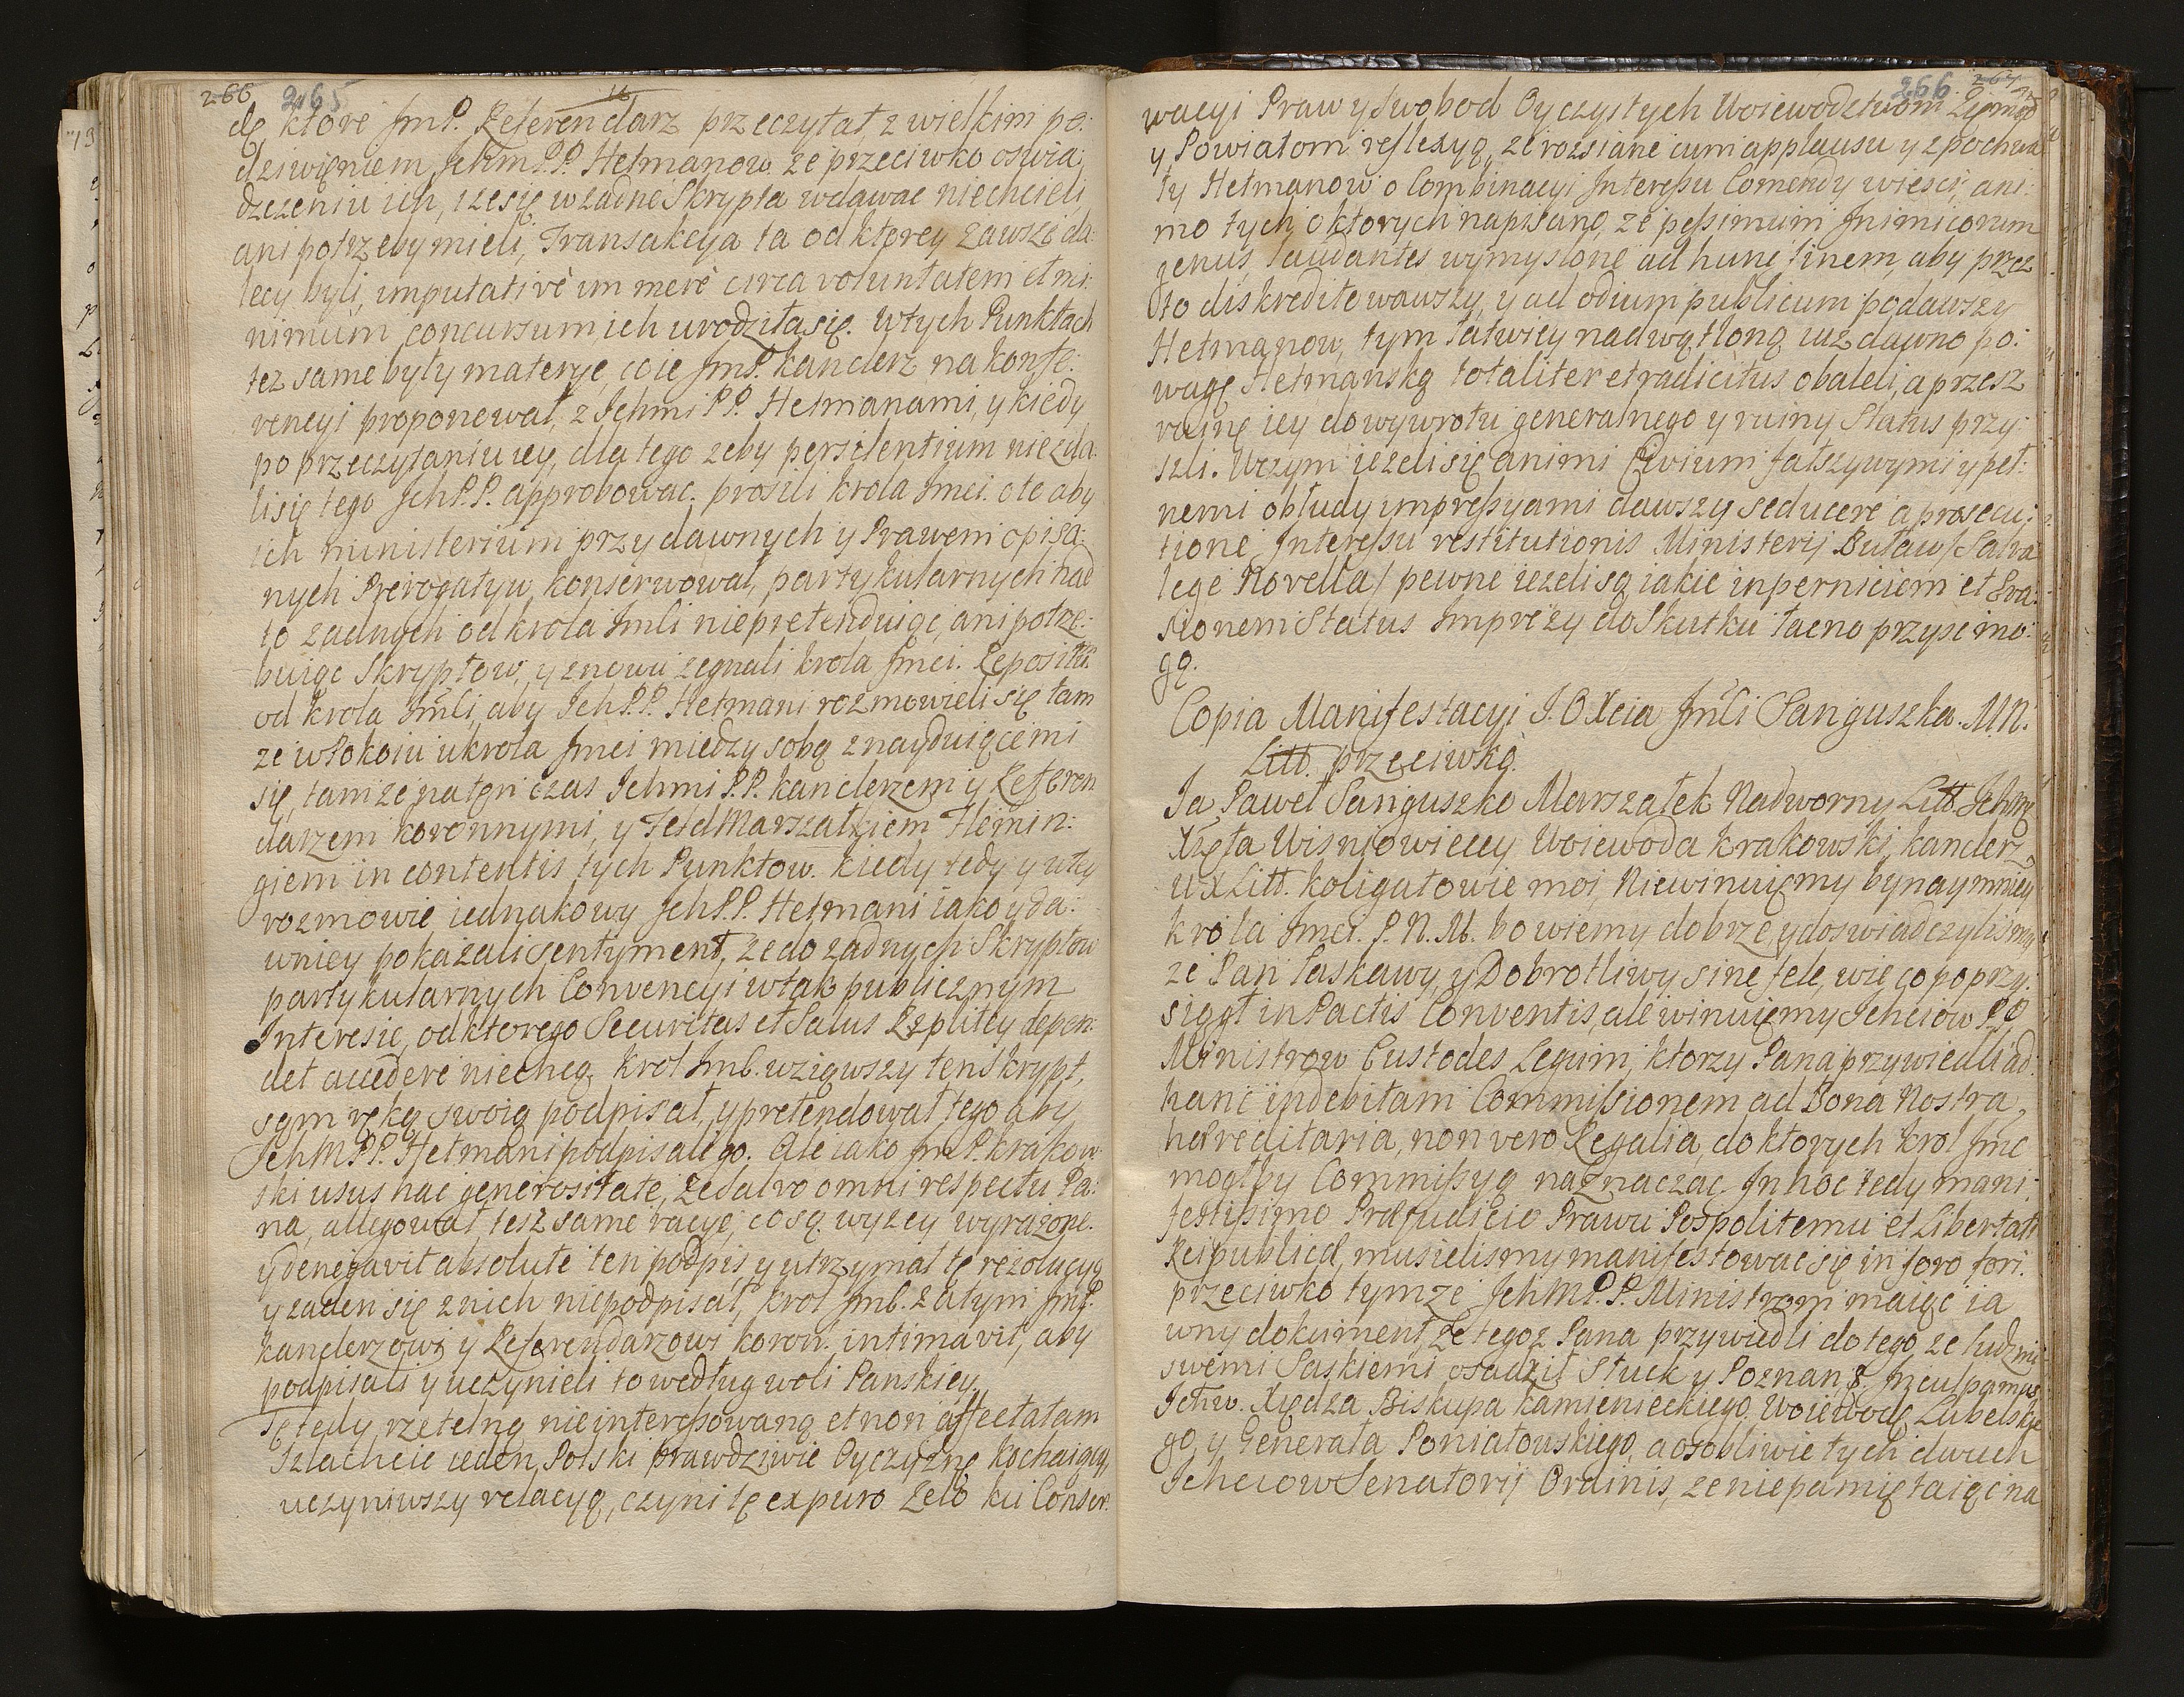 266 265
dę ktore JmP. Referendarz przeczytał, z wielkim po:
dziwięniem JchmP.P. Hetmanow. ze przeciwko oswia:
dzczeniu ich, że się w żadne Skrypta wdawac niechcieli
ani potrzeby mieli, Transakcya ta od ktorey zawsze da:
lecy byli, imputativè im merè circa voluntatem et mi:
nimum concursum ich urodziła się. W tych Punktach
tez same były materye, co ie JmP. kanclerz na konfe:
rencyi proponował, z Ichmi PP. Hetmanami, y kiedy
po przeczytaniu iey, dla tego zeby per silentium nie zda:
li się tego JchP.P. approbowac. prosili krola Jmci. o to aby
ich ministerium przy dawnych y Prawem opisa:
nych Prerogatyw, konserwował, partykularnych nad
to zadnych od krola Jmści niepretenduiąc, ani potrze:
buiąc Skryptow, y znowu zegnali krola Jmci. Repositũ
od krola Jmści, aby JchP.P. Hetmani rozmowieli się tam
ze w Pokoiu u krola Jmci miedzy sobą z nayduiącemi
się, tamze na ten czas Ichmi P.P. kanclerzem y Referen
darzem koronnymi, y FeldMarszałkiem Flemin:
giem in contentis tych Punktow. kiedy tedy y w tey
rozmowie iednakowy JchP.P. Hetmani iako y da:
wniey pokazali sentyment, ze do zadnych Skryptow
partykularnych Convencyi w tak publicznym
Interesie, od ktorego Securitas et Salus Rzplitey depen:
det accedere niechcą. krol Jmć. wziąwszy ten Skrypt,
sam ręką swoią podpisał, y pretendował tego aby
JchMPP. Hetmani podpisali go. Ale iako JmP. krakow
ski usus hac generositate, ze salvo omni respectu Pa:
na, allegował tesz same racye, co są wyzey wyrazone.
y denegavit absolute ten podpis, y utrzymał tę rezolucyą
y zaden się z nich niepodpisał, krol Jmć. zatym JmP.
kanclerzowi y Referendarzowi koron. intimavit, aby
podpisali y uczynieli to według woli Panskiey.
Tę tedy rzetelną nieinteressowaną et non affectatam
Szlachcic ieden Polski prawdziwie Oyczyznę kochaiący,
uczyniwszy relacyą, czyni tę ex puro Zelo ku Conser:
266
wacyi Praw y Swobod Oyczystych Woiewodztwom Ziemiom
y Powiatom reflexyą, ze rozsiane cum applausu y z pochwa
ły Hetmanow o Combinacyi Interessu Comendy wiesci, ani:
mo tych, o ktorych napisano, ze pessimum Inimicorum
genus, laudantes wymyslone ad hunc finem, aby przez
to diskreditowawszy, y ad odium publicum podawszy
Hetmanow, tym łatwiey nadwątloną iuz dawno po:
wagę Hetmanską totaliter et radicitus obaleli, a przesz
ruinę iey do wywrotu generalnego y ruiny Status przy:
szli. W czym iezeli się animi Civium fałszywymi y peł:
nemi obłudy impressyami dawszy seducere a prosecu:
tione Interessu restitutionis Ministerij Buław / Salva
lege Novella / pewne iezeli są iakie in perniciem et Eva:
sionem Status Imprezy do Skutku łacno przysc mo:
gą.
Copia Manifestacyi J.O.Xcia Jmści Sanguszka. M.N.
Litt. przeciwko.
Ja Paweł Sanguszko Marszałek Nadworny Litt. Jchm
Xsęta Wisniowieccy Woiewoda krakowski, kanclerz
WXLitt. koligatowie moi, Niewinuięmy bynaymniey
krola Jmci. P.N.M. bo wiemy dobrze, y doswiadczylismy
ze Pan łaskawy, y Dobrotliwy sine fele, wie co poprzy:
siągł in Pactis Conventis, ale winuięmy Jchciow PP
Ministrow Custodes Legum, ktorzy Pana przywiedli ad
hanc indebitam Commissionem ad Bona Nostra,
hæreditaria, non vero Regalia, do ktorych krol Jmc
mogłby Commissyą naznaczac. In hoc tedy mani:
festissimo Præjudicio Prawu Pospolitemu et Libertati
Reipublicæ, musielismy manifestowac się in foro fori.
przeciwko tymze JchMP.P. Ministrom maiąc ia
wny dokument, ze tegoz Pana przywiedli do tego, ze ludzmi
swemi Saskiemi osadził Słuck y Poznan, Inculpamus
Jchw. Xiędza Biskupa kamienieckiego, Woiewodę Lubelskie
go, y Generała Poniatowskiego, a osobliwie tych dwuch
Jchciow Senatorij Ordinis, ze niepamiętaiąc na